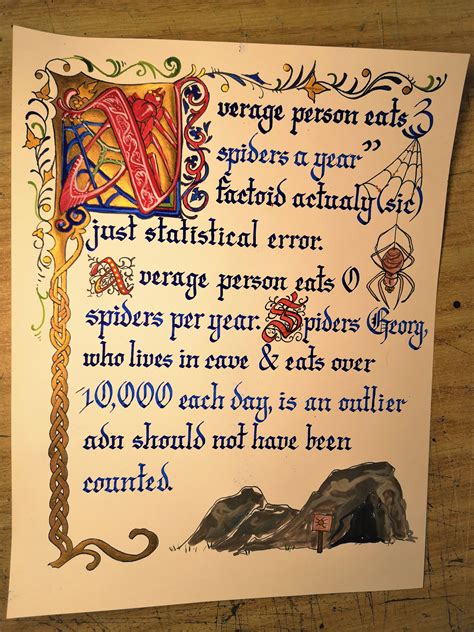 Average person eats 3
spiders a year”
factoid actualy (sic)
just statistical error.
Average person eats 0
spiders per year. Spiders Georg,
who lives in cave & eats over
10,000 each day, is an outlier
adn should not have been
counted.